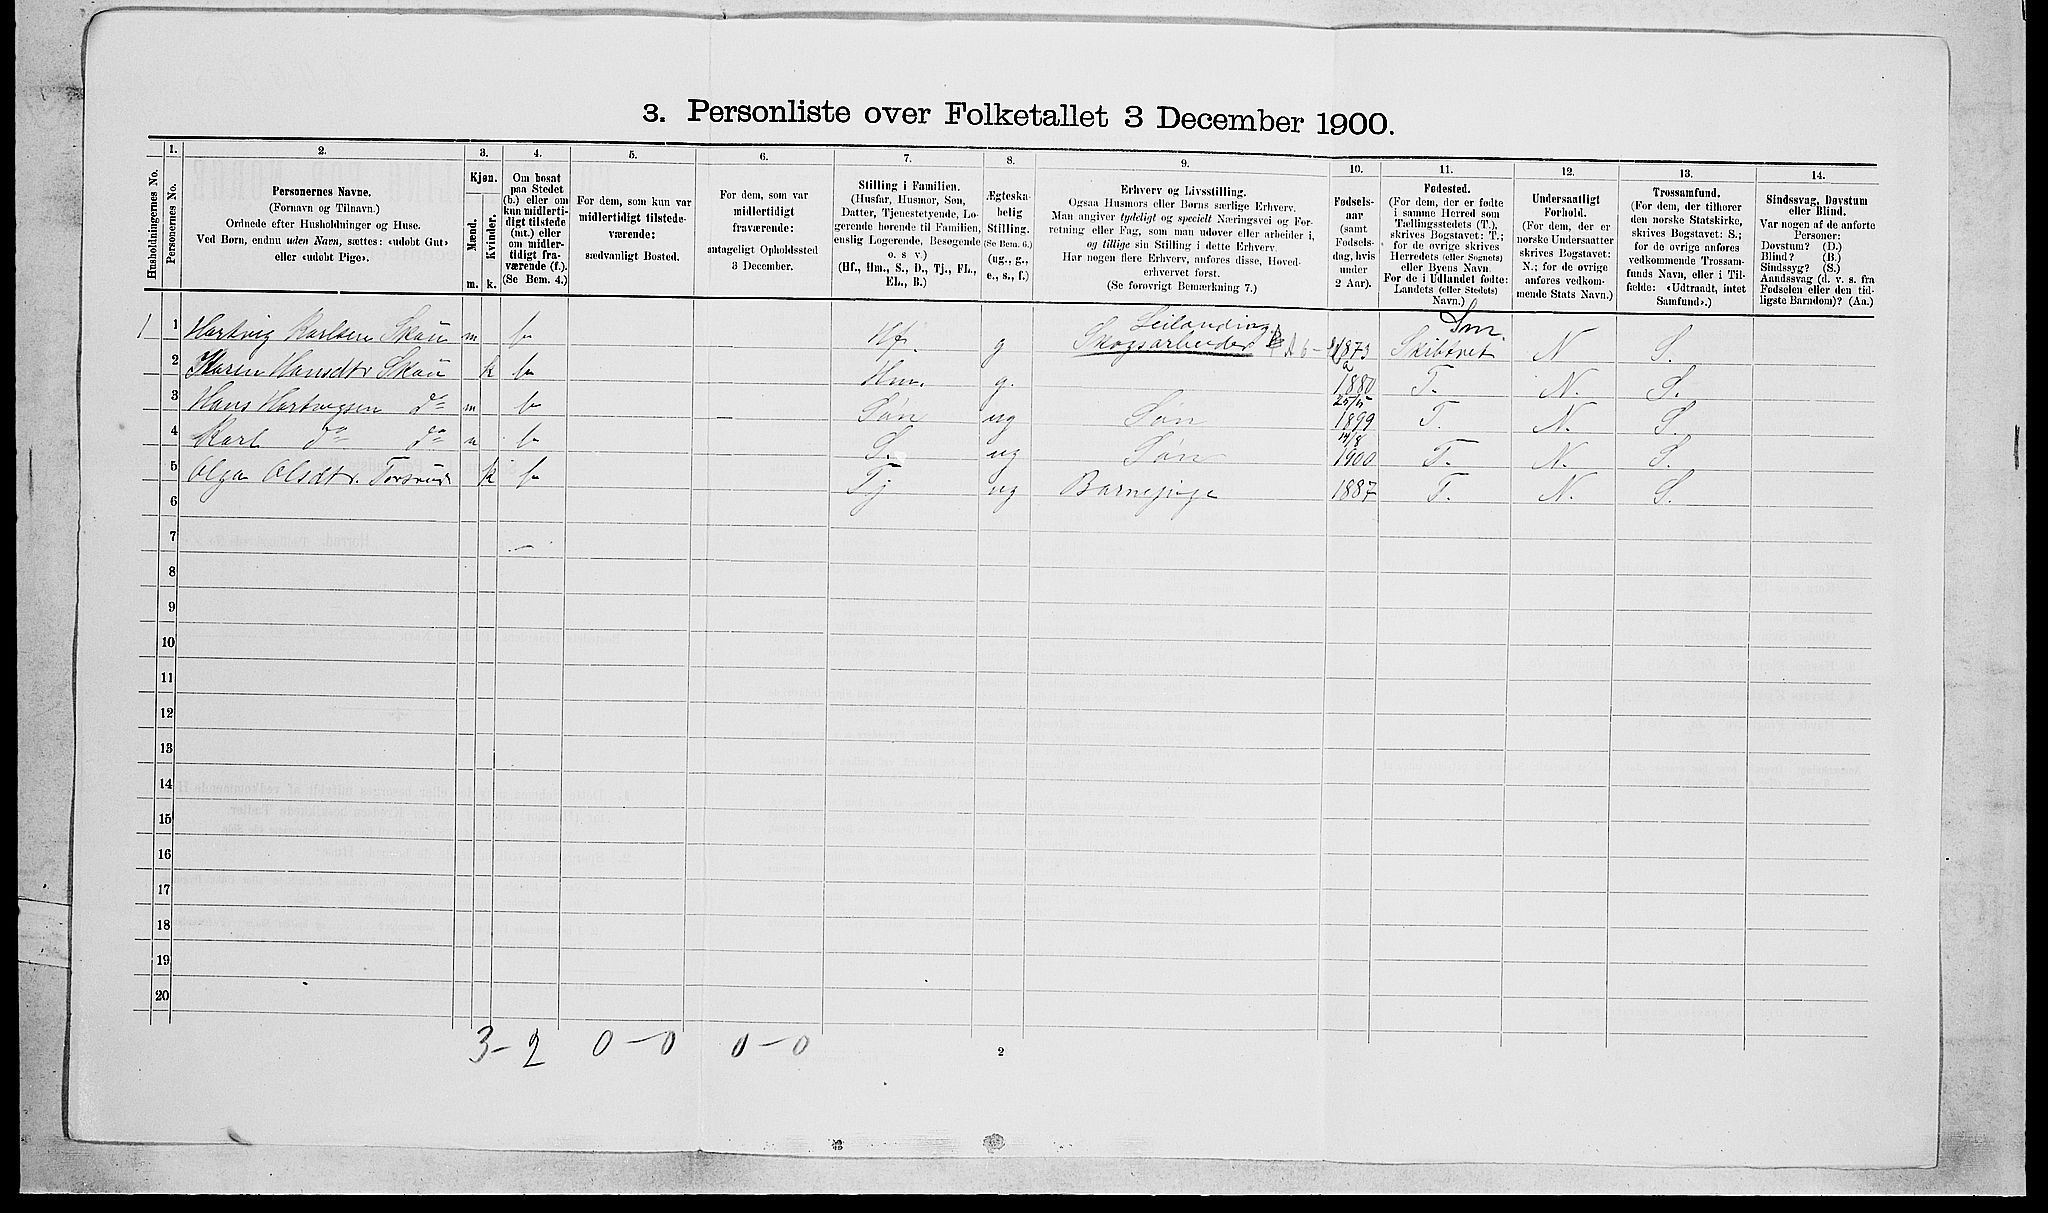 3. Personliste over Folketallet 3 December 1900.
Husholdningernes No.
1.
Personernes No.
2.
Personernes Navne.
(Fornavn og Tilnavn.)
Ordnede efter Husholdninger og Huse.
Ved Børn, endnu uden Navn, sættes: «udøbt Gut»
eller «udøbt Pige».
3.
Kjøn.
Mænd.
Kvinder.
m. k.
4.
Om bosat
paa Stedet
(b.) eller om
kun midlerti-
digt tilstede
(mt.) eller
om midler-
tidigt fra-
værende (f.).
(Se Bem. 4.)
5.
For dem, som kun var
midlertidigt tilstede-
værende:
sædvanligt Bosted.
6.
For dem, som var
midlertidigt
fraværende:
antageligt Opholdssted
3 December.
7.
Stilling i Familien.
(Husfar, Husmor, Søn,
Datter, Tjenestetyende, Lo-
gerende hørende til Familien,
enslig Logerende, Besøgende
o. s v.)
(Hf., Hm., S., D., Tj., FL.,
EL., B.)
8.
Ægteska-
belig
Stilling.
(Se Bem. 6.)
(ug., g.,
e., s., f.)
9.
Erhverv og Livsstilling.
Ogsaa Husmors eller Børns særlige Erhverv.
Man angiver tydeligt og specielt Næringsvei og For-
retning eller Fag, som man udøver eller arbeider i,
og tillige sin Stilling i dette Erhverv.
Har nogen flere Erhverv, anføres disse, Hoved-
erhvervet først.
(Se forøvrigt Bemærkning 7.)
10.
Fødsels-
aar
(samt
Fødsels-
dag, hvis
under
2 Aar).
11.
Fødested.
(For dem, der er fødte
i samme Herred som
Tællingsstedets (T.),
skrives Bogstavet: T.;
for de øvrige skrives
Herredets (eller Sognets)
eller Byens Navn.
For de i Udlandet fødte:
Landets (eller Stedets)
Navn.)
12.
Undersaatligt
Forhold.
(For dem, der er
norske Undersaatter
skrives Bogstavet:
N.; for de øvrige
anføres vedkom-
mende Stats Navn.)
13.
Trossamfund.
(For dem, der tilhører
den norske Statskirke,
skrives Bogstavet: S.;
for de øvrige anføres
vedkommende Trossam-
funds Navn, eller i Til-
fælde: «Udtraadt, intet
Samfund».)
14.
Sindssvag, Døvstum
eller Blind.
Var nogen af de anførte
Personer:
Døvstum? (D.)
Blind? (B.)
Sindssyg? (S.)
Aandssvag (d. v. s. fra
Fødselen eller den tid-
ligste Barndom)? (Aa.)
Leilending Sm
1 1 Hartvig Karlsen Skau m b Hf. g Skogsarbeider 1873 Skibtvet N S.
2 Karen Hansdtr Skau k b Hm. g. 1880 T. N. S.
25/5
3 Hans Hartvigsen do m b Søn ug Søn 1899 T. N. S.
14/8
4 Karl do do m b S. ug Søn 1900 T. N. S.
5 Olga Olsdtr. k b Tj ug Barnepige 1887 T. N. S.
6
7
8
9
10
11
12
13
14
15
16
17
18
19
20
3-2 0-0 0-0
2